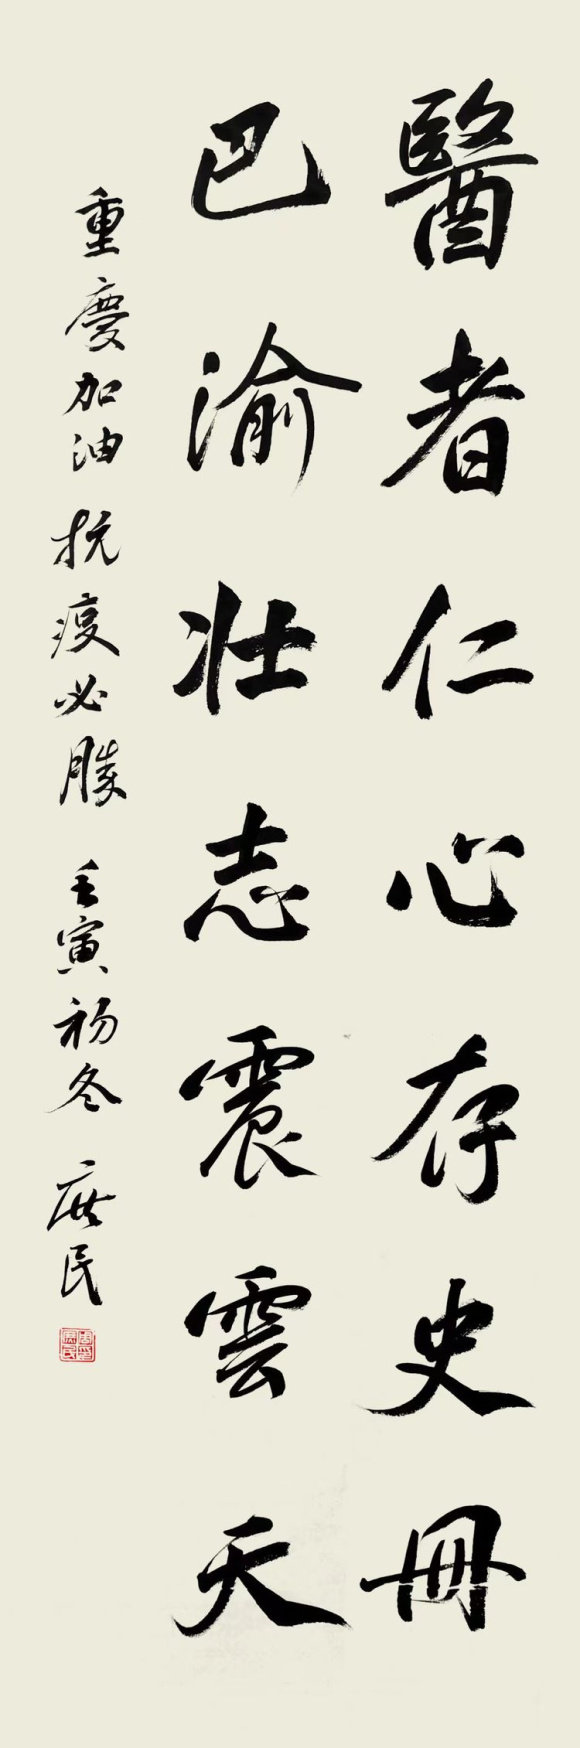 醫者仁心存史冊
巴渝壯志震雲天
重慶加油抗疫必勝 壬寅初冬 庶民